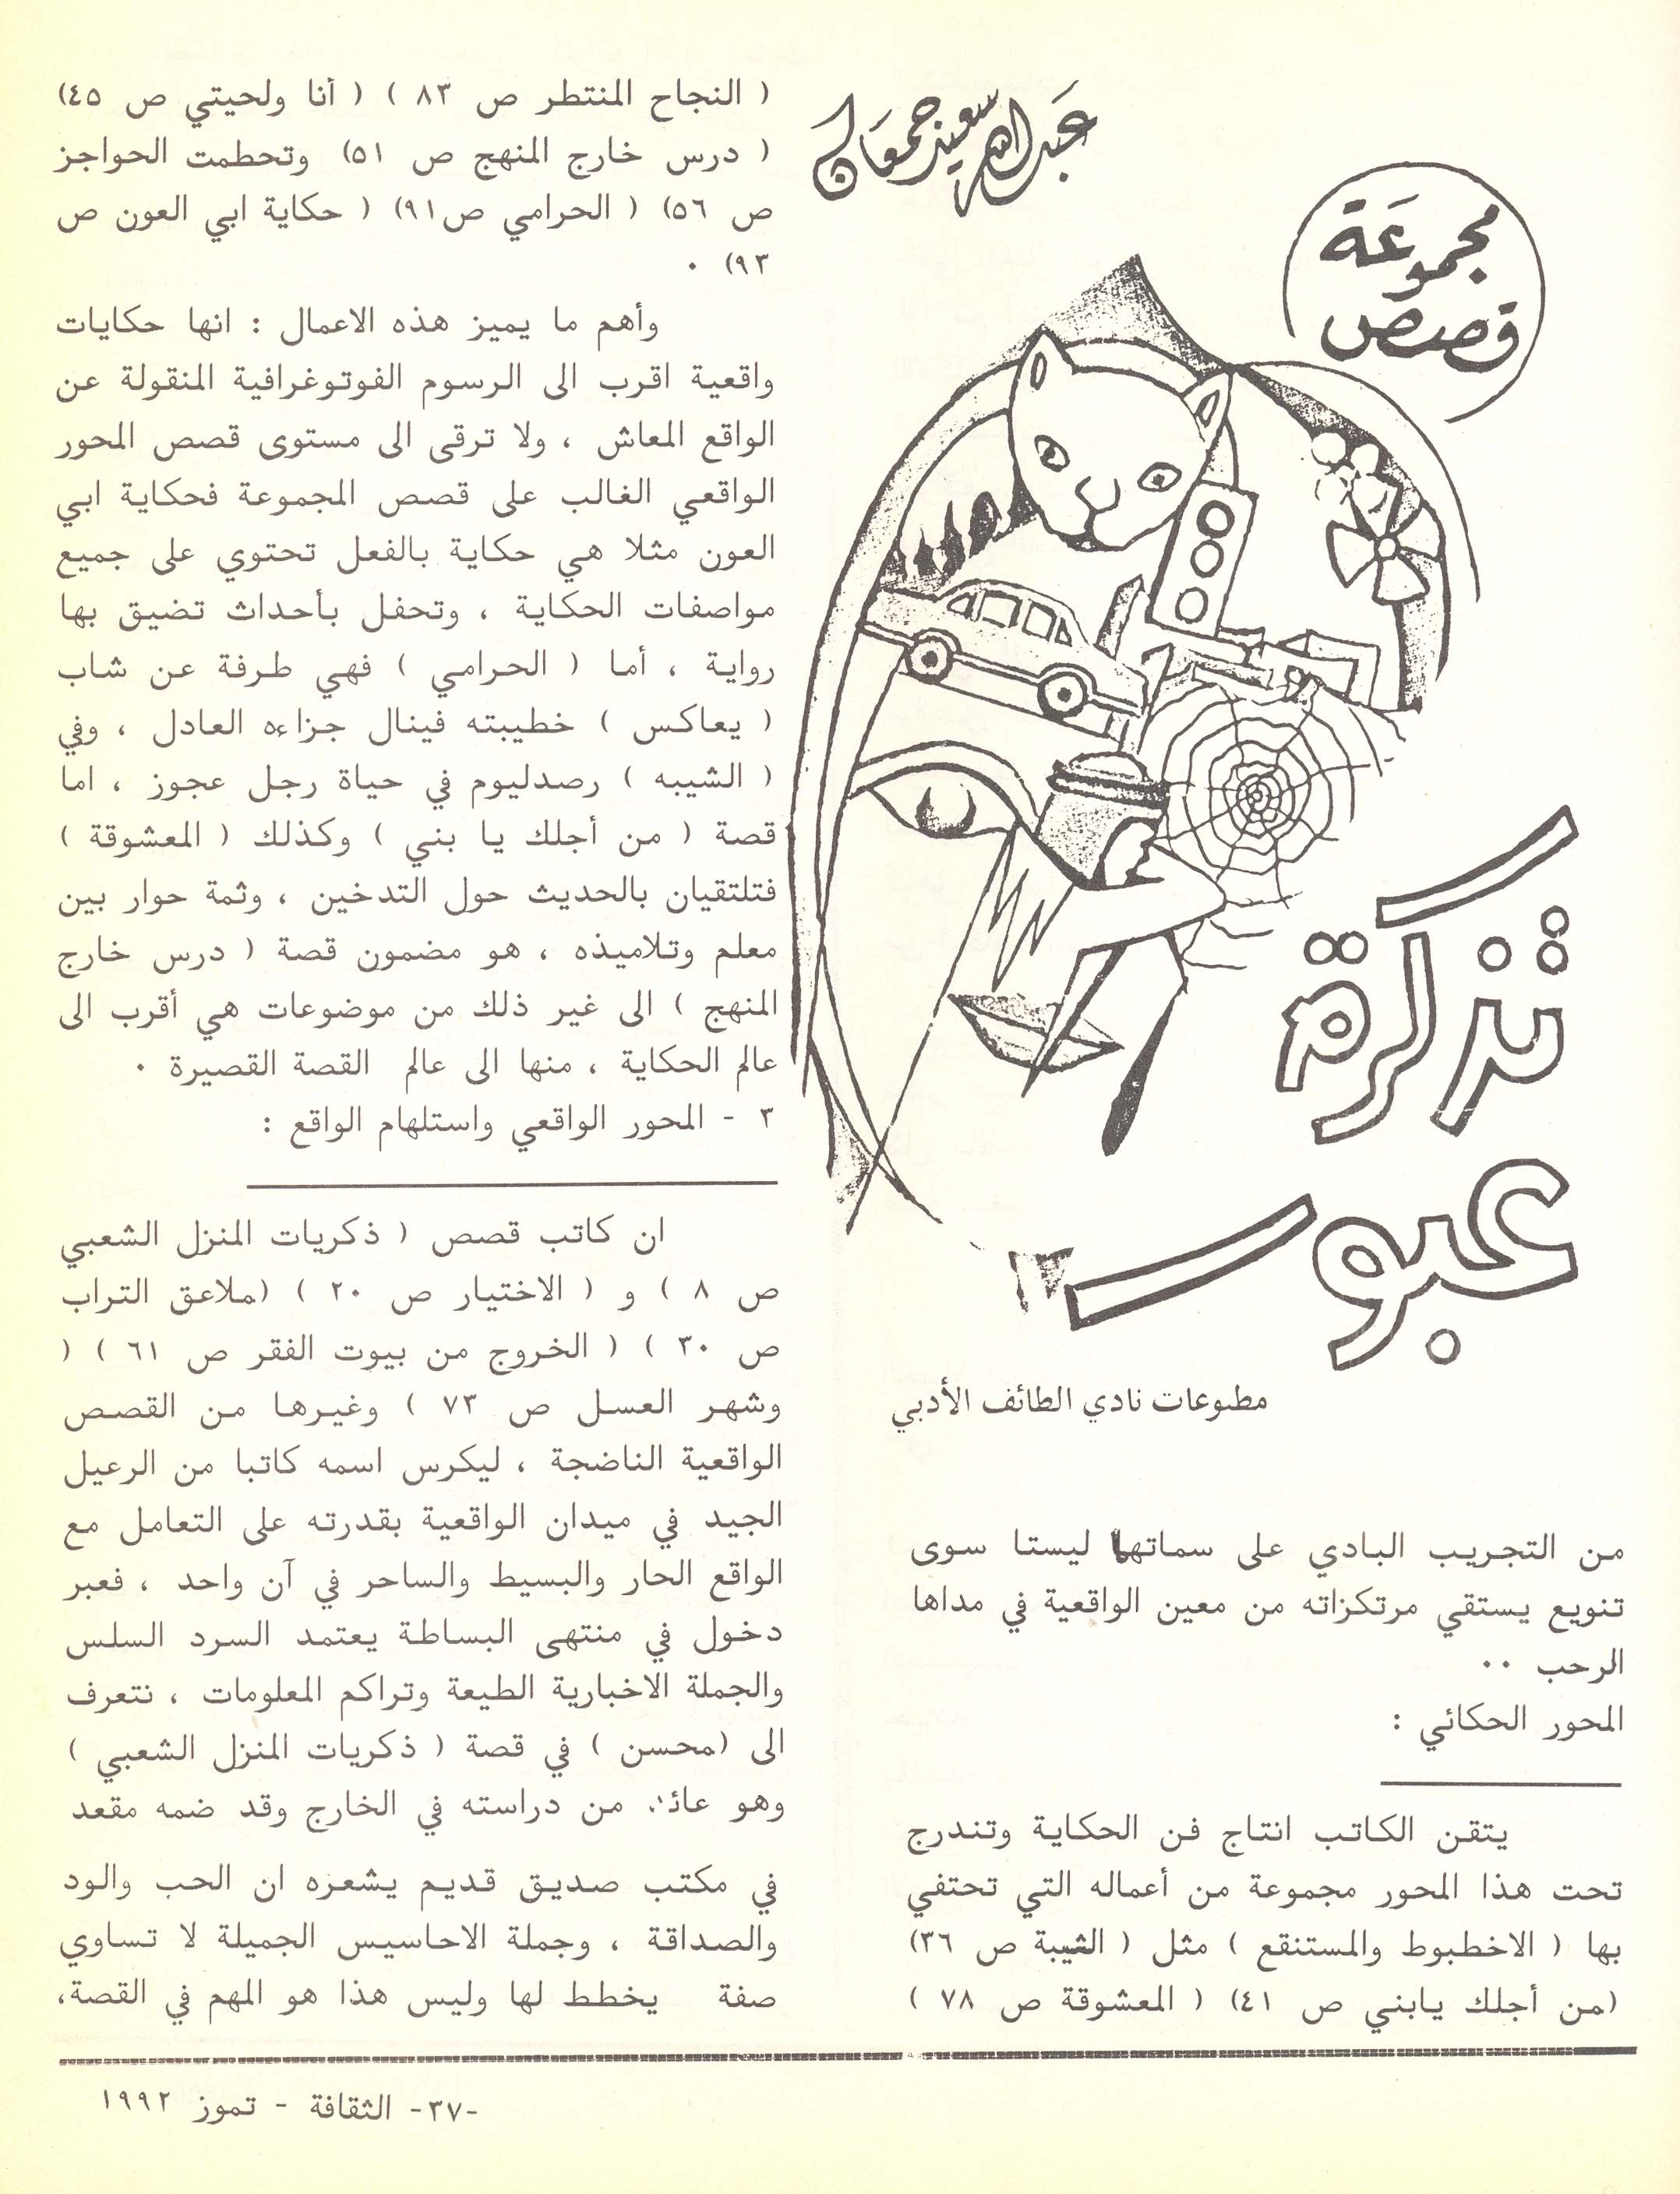 عبدالله سعيد جمعان
مجموعة
قصص
تذكرة
عبور
مطبوعات نادي الطائف الأدبي
من التجريب البادي على سماتها ليستا سوى
تنويع يستقي مرتكزاته من معين الواقعية في مداها
الرحب ٠٠
المحور الحكائي :
يتقن الكاتب انتاج فن الحكاية وتندرج
تحت هذا المحور مجموعة من أعماله التي تحتفي
بها ( الاخطبوط والمستنقع ) مثل ( الشيبة ص ٣٦)
(من أجلك يابني ص ٤١) ( المعشوقة ص ٧٨ )
( النجاح المنتطر ص ٨٣ ) ( أنا ولحيتي ص ٤٥)
( درس خارج المنهج ص ٥١) وتحطمت الحواجز
ص ٥٦) ( الحرامي ص٩١) ( حكاية ابي العون ص
٩٣) ٠
وأهم ما يميز هذه الاعمال : انها حكايات
واقعية اقرب الى الرسوم الفوتوغرافية المنقولة عن
الواقع المعاش ، ولا ترقى الى مستوى قصص المحور
الواقعي الغالب على قصص المجموعة فحكاية ابي
العون مثلا هي حكاية بالفعل تحتوي على جميع
مواصفات الحكاية ، وتحفل بأحداث تضيق بها
رواية ، أما ( الحرامي ) فهي طرفة عن شاب
( يعاكس ) خطيبته فينال جزاءه العادل ، وفي
( الشيبه ) رصدليوم في حياة رجل عجوز ، اما
قصة ( من أجلك يا بني ) وكذلك ( المعشوقة )
فتلتقيان بالحديث حول التدخين ، وثمة حوار بين
معلم وتلاميذه ، هو مضمون قصة ( درس خارج
المنهج ) الى غير ذلك من موضوعات هي أقرب الى
عالم الحكاية ، منها الى عالم القصة القصيرة ٠
٣ - المحور الواقعي واستلهام الواقع :
ان كاتب قصص ( ذكريات المنزل الشعبي
ص ٨ ) و ( الاختيار ص ٢٠ ) (ملاعق التراب
ص ٣٠ ) ( الخروج من بيوت الفقر ص ٦١ ) (
وشهر العسل ص ٧٣ ) وغيرها من القصص
الواقعية الناضجة ، ليكرس اسمه كاتبا من الرعيل
الجيد في ميدان الواقعية بقدرته على التعامل مع
الواقع الحار والبسيط والساحر في آن واحد ، فعبر
دخول في منتهى البساطة يعتمد السرد السلس
والجملة الاخبارية الطيعة وتراكم المعلومات ، نتعرف
الى (محسن ) في قصة ( ذكريات المنزل الشعبي )
وهو عائد من دراسته في الخارج وقد ضمه مقعد
في مكتب صديق قديم يشعره ان الحب والود
والصداقة ، وجملة الاحاسيس الجميلة لا تساوي
صفة يخطط لها وليس هذا هو المهم في القصة،
-٣٧- الثقافة - تموز ١٩٩٢